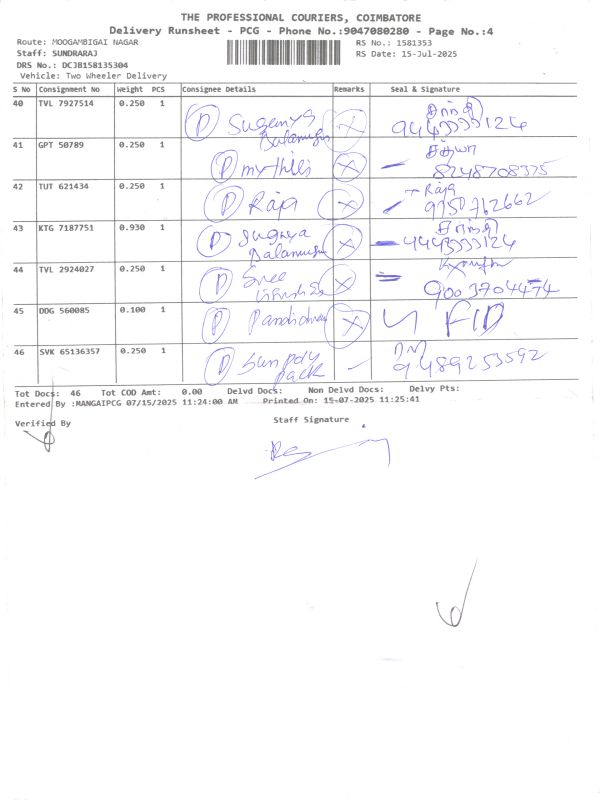 THE PROFESSIONAL COURIERS, COIMBATORE
Delivery Runsheet - PCG - Phone No.:9047080280 - Page No.:4
Route: MOOGAMBIGAI NAGAR RS No.: 1581353
Staff: SUNDRARAJ RS Date: 15-Jul-2025
DRS No.: DCJB158135304
Vehicle: Two Wheeler Delivery
S No Consignment No Weight PCS Consignee Details Remarks Seal & Signature
40 TVL 7927514 0.250 1 P Suganya
41 GPT 50789 0.250 1 P mythili 8248708375
42 TUT 621434 0.250 1 P Raja Raja
9750762662
43 KTG 7187751 0.930 1 P Sugnya
44 TVL 2924027 0.250 1 P Sree
9003704474
45 DDG 560085 0.100 1 P
46 SVK 65136357 0.250 1 P Sun poly
pack 9489253592
Tot Docs: 46 Tot COD Amt: 0.00 Delvd Docs: Non Delvd Docs: Delvy Pts:
Entered By :MANGAIPCG 07/15/2025 11:24:00 AM Printed On: 15-07-2025 11:25:41
Verified By Staff Signature